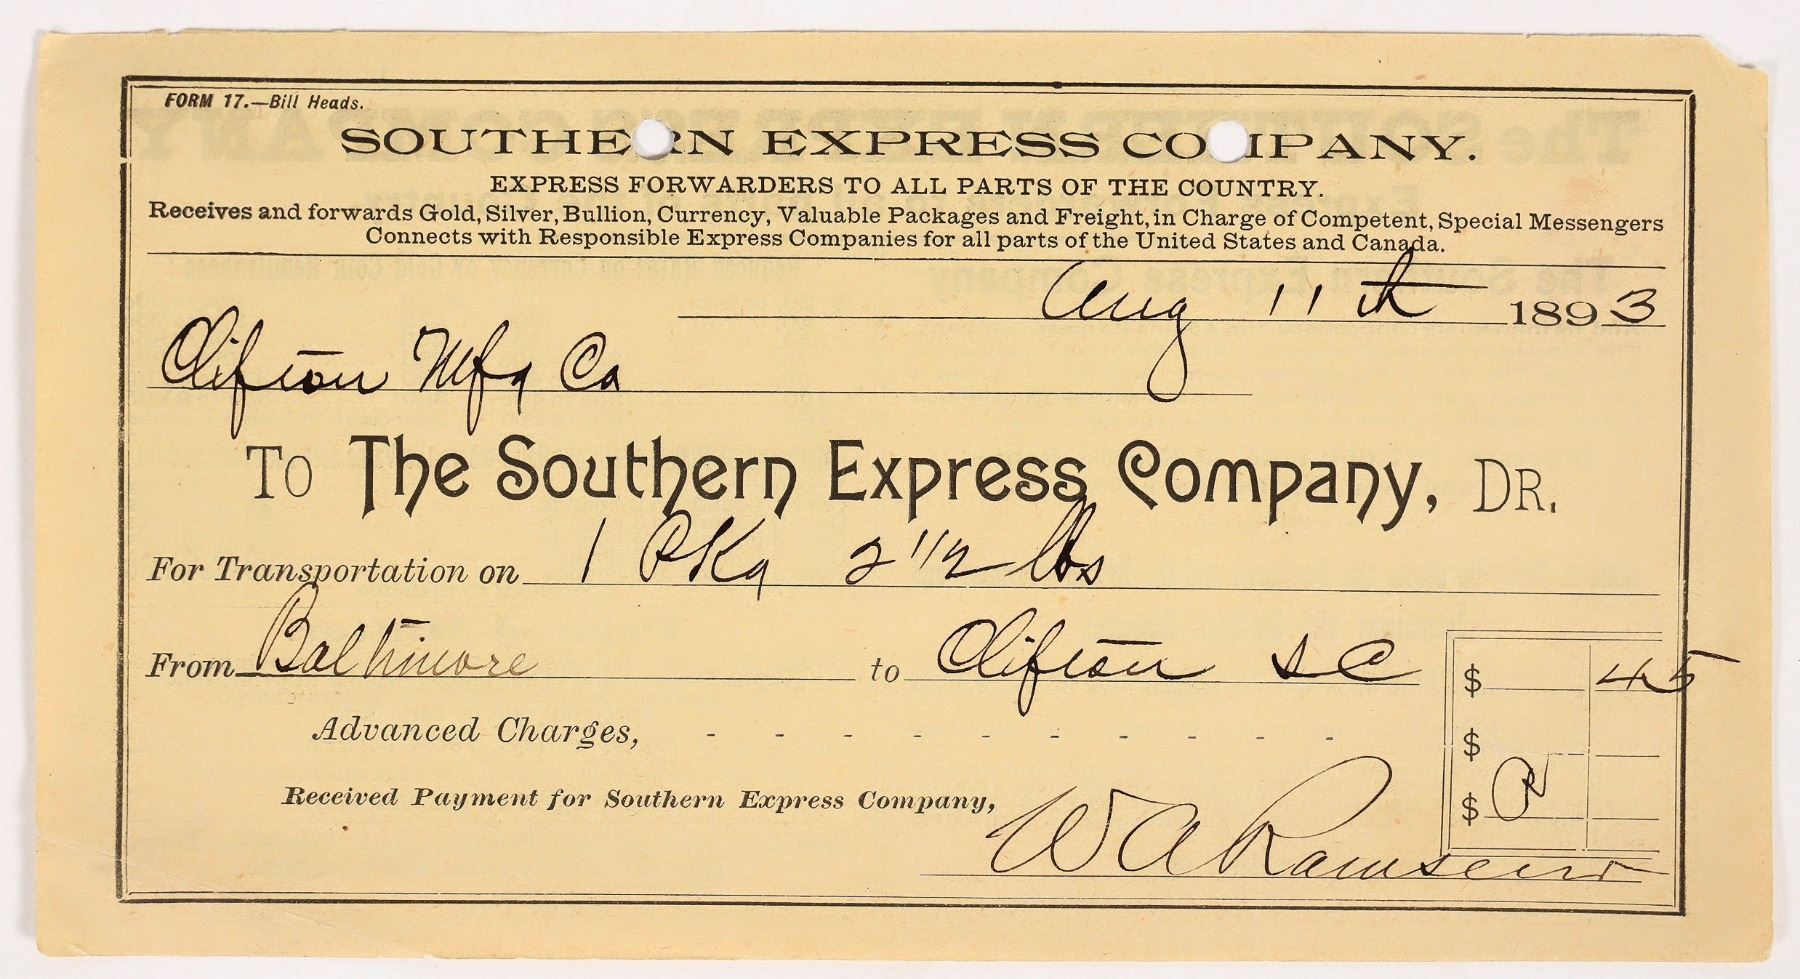 FORM 17.—Bill Heads.
SOUTHERN EXPRESS COMPANY.
EXPRESS FORWARDERS TO ALL PARTS OF THE COUNTRY.
Receives and forwards Gold, Silver, Bullion, Currency, Valuable Packages and Freight, in Charge of Competent, Special Messengers
Connects with Responsible Express Companies for all parts of the United States and Canada.
Aug 11th 1893
Clifton Mfg Co
TO The Southern Express Company, DR.
For Transportation on 1 Pkg 2 1/2 lbs
From Baltimore to Clifton SC $ 45
Advanced Charges, - - - - - - - - - - $
Received Payment for Southern Express Company, $
W A Ramseur